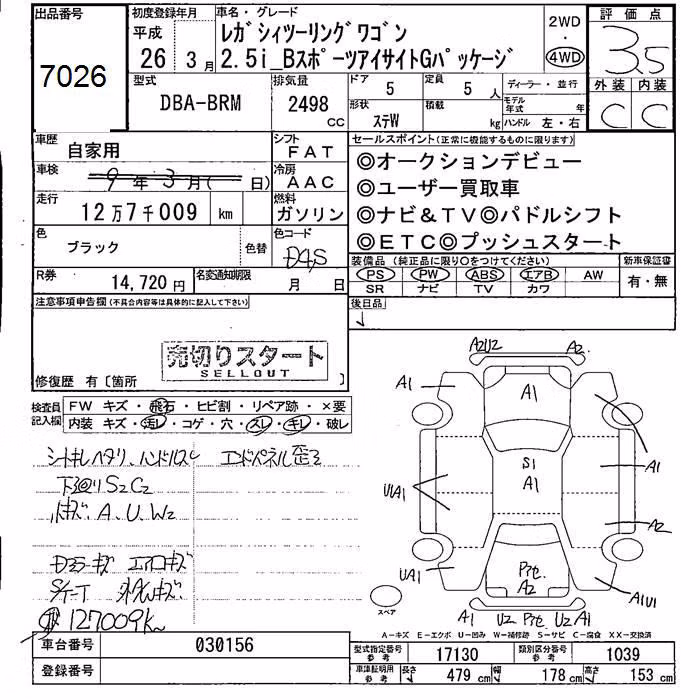 出品番号
7026
初度登録年月
平成
26年 3月
車名・グレード
レガシィツーリングワゴン
2.5i_BスポーツアイサイトGパッケージ
2WD
・
4WD
評価点
3.5
外装 内装
C C
型式
DBA-BRM
排気量
2498
CC
ドア
5
定員
5人
ディーラー・並行
形状
ステW
積載
kg
モデル年式 年
ハンドル 左・右
車歴
自家用
シフト
FAT
車検
9年 3月( 日)
冷房
AAC
走行
12万7千009 km
燃料
ガソリン
色
ブラック
色替
色コード
D4S
R券
14,720円
名変通知期限
月 日
セールスポイント(正常に機能するものに限ります)
◎オークションデビュー
◎ユーザー買取車
◎ナビ&TV◎パドルシフト
◎ETC◎プッシュスタート
装備品(純正品に限り○をつけてください)
PS PW ABS エアB AW
SR ナビ TV カワ
新車保証書
有・無
後日品
注意事項申告欄(不具合内容等は具体的に記入して下さい)
売切りスタート
SELLOUT
修復歴 有〔箇所 〕
検査員記入欄
FW キズ・飛石・ヒビ割・リペア跡・×要
内装 キズ・汚レ・コゲ・穴・スレ・キレ・破レ
シートキレヘタリ、ハンドルスレ
エンドパネル歪ミ
下回りS2C2
A.U.W2
ドアミラーキズ エアロキズ
127009km
A2U2 A2
A1 A1
S1
A1
A1
U1A1
A2
UA1
P化.
A2
A1U1
A1 U2 P化 U2 A1
スペア
A-キズ E-エクボ U-凹み W-補修跡 S-サビ C-腐食 XX-交換済
車台番号
030156
登録番号
型式指定番号
参考
17130
類別区分番号
参考
1039
車証証明用
参考
長さ 479cm 幅 178cm 高さ 153cm